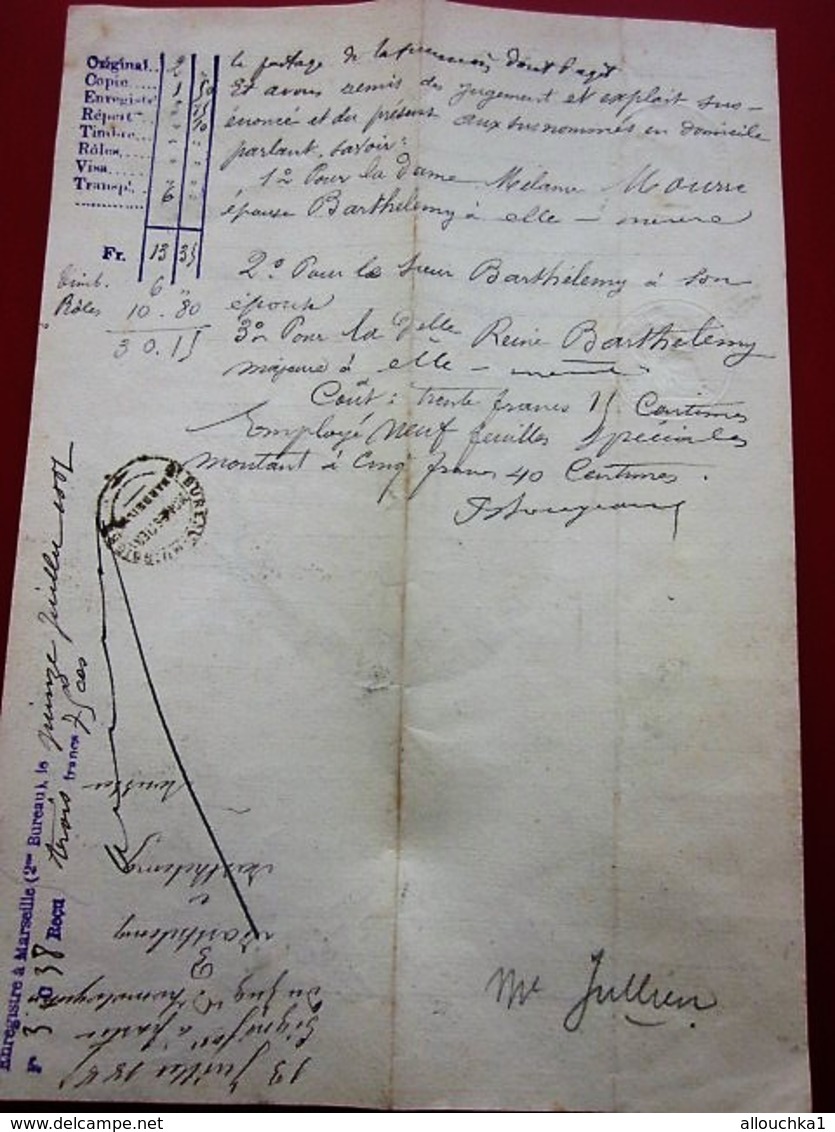 Original.. 2 "
Copie... 1 50
Enregistt
Répert..
Timbre..
Rôles.... " "
Visa..... " "
Transpt. 6 "
Fr. 13 35
Timb. 6 "
Rôles 10.80
30.15
le partage de la succession dont s'agit
Et avons remis des jugement et exploit sus-
énoncé et du présent aux susnommés en domicile
parlant, savoir:
1o Pour la dame Mélanie Mourre
épouse Barthélemy à elle-même
2o Pour le Sieur Barthélemy à son
épouse
3o Pour la Delle Reine Barthélemy
majeure à elle-même
Coût: trente francs 15 Centimes
Employé neuf feuilles spéciales
montant à Cinq francs 40 Centimes.
Enregistré à Marseille (2me Bureau), le quinze Juillet
Fo 38 Reçu trois francs 75 ces
13 Juillet
Signifon à partie
Du Jugt D'homologation
Barthélemy
c
Barthélemy
Me Jullien
allouchka1